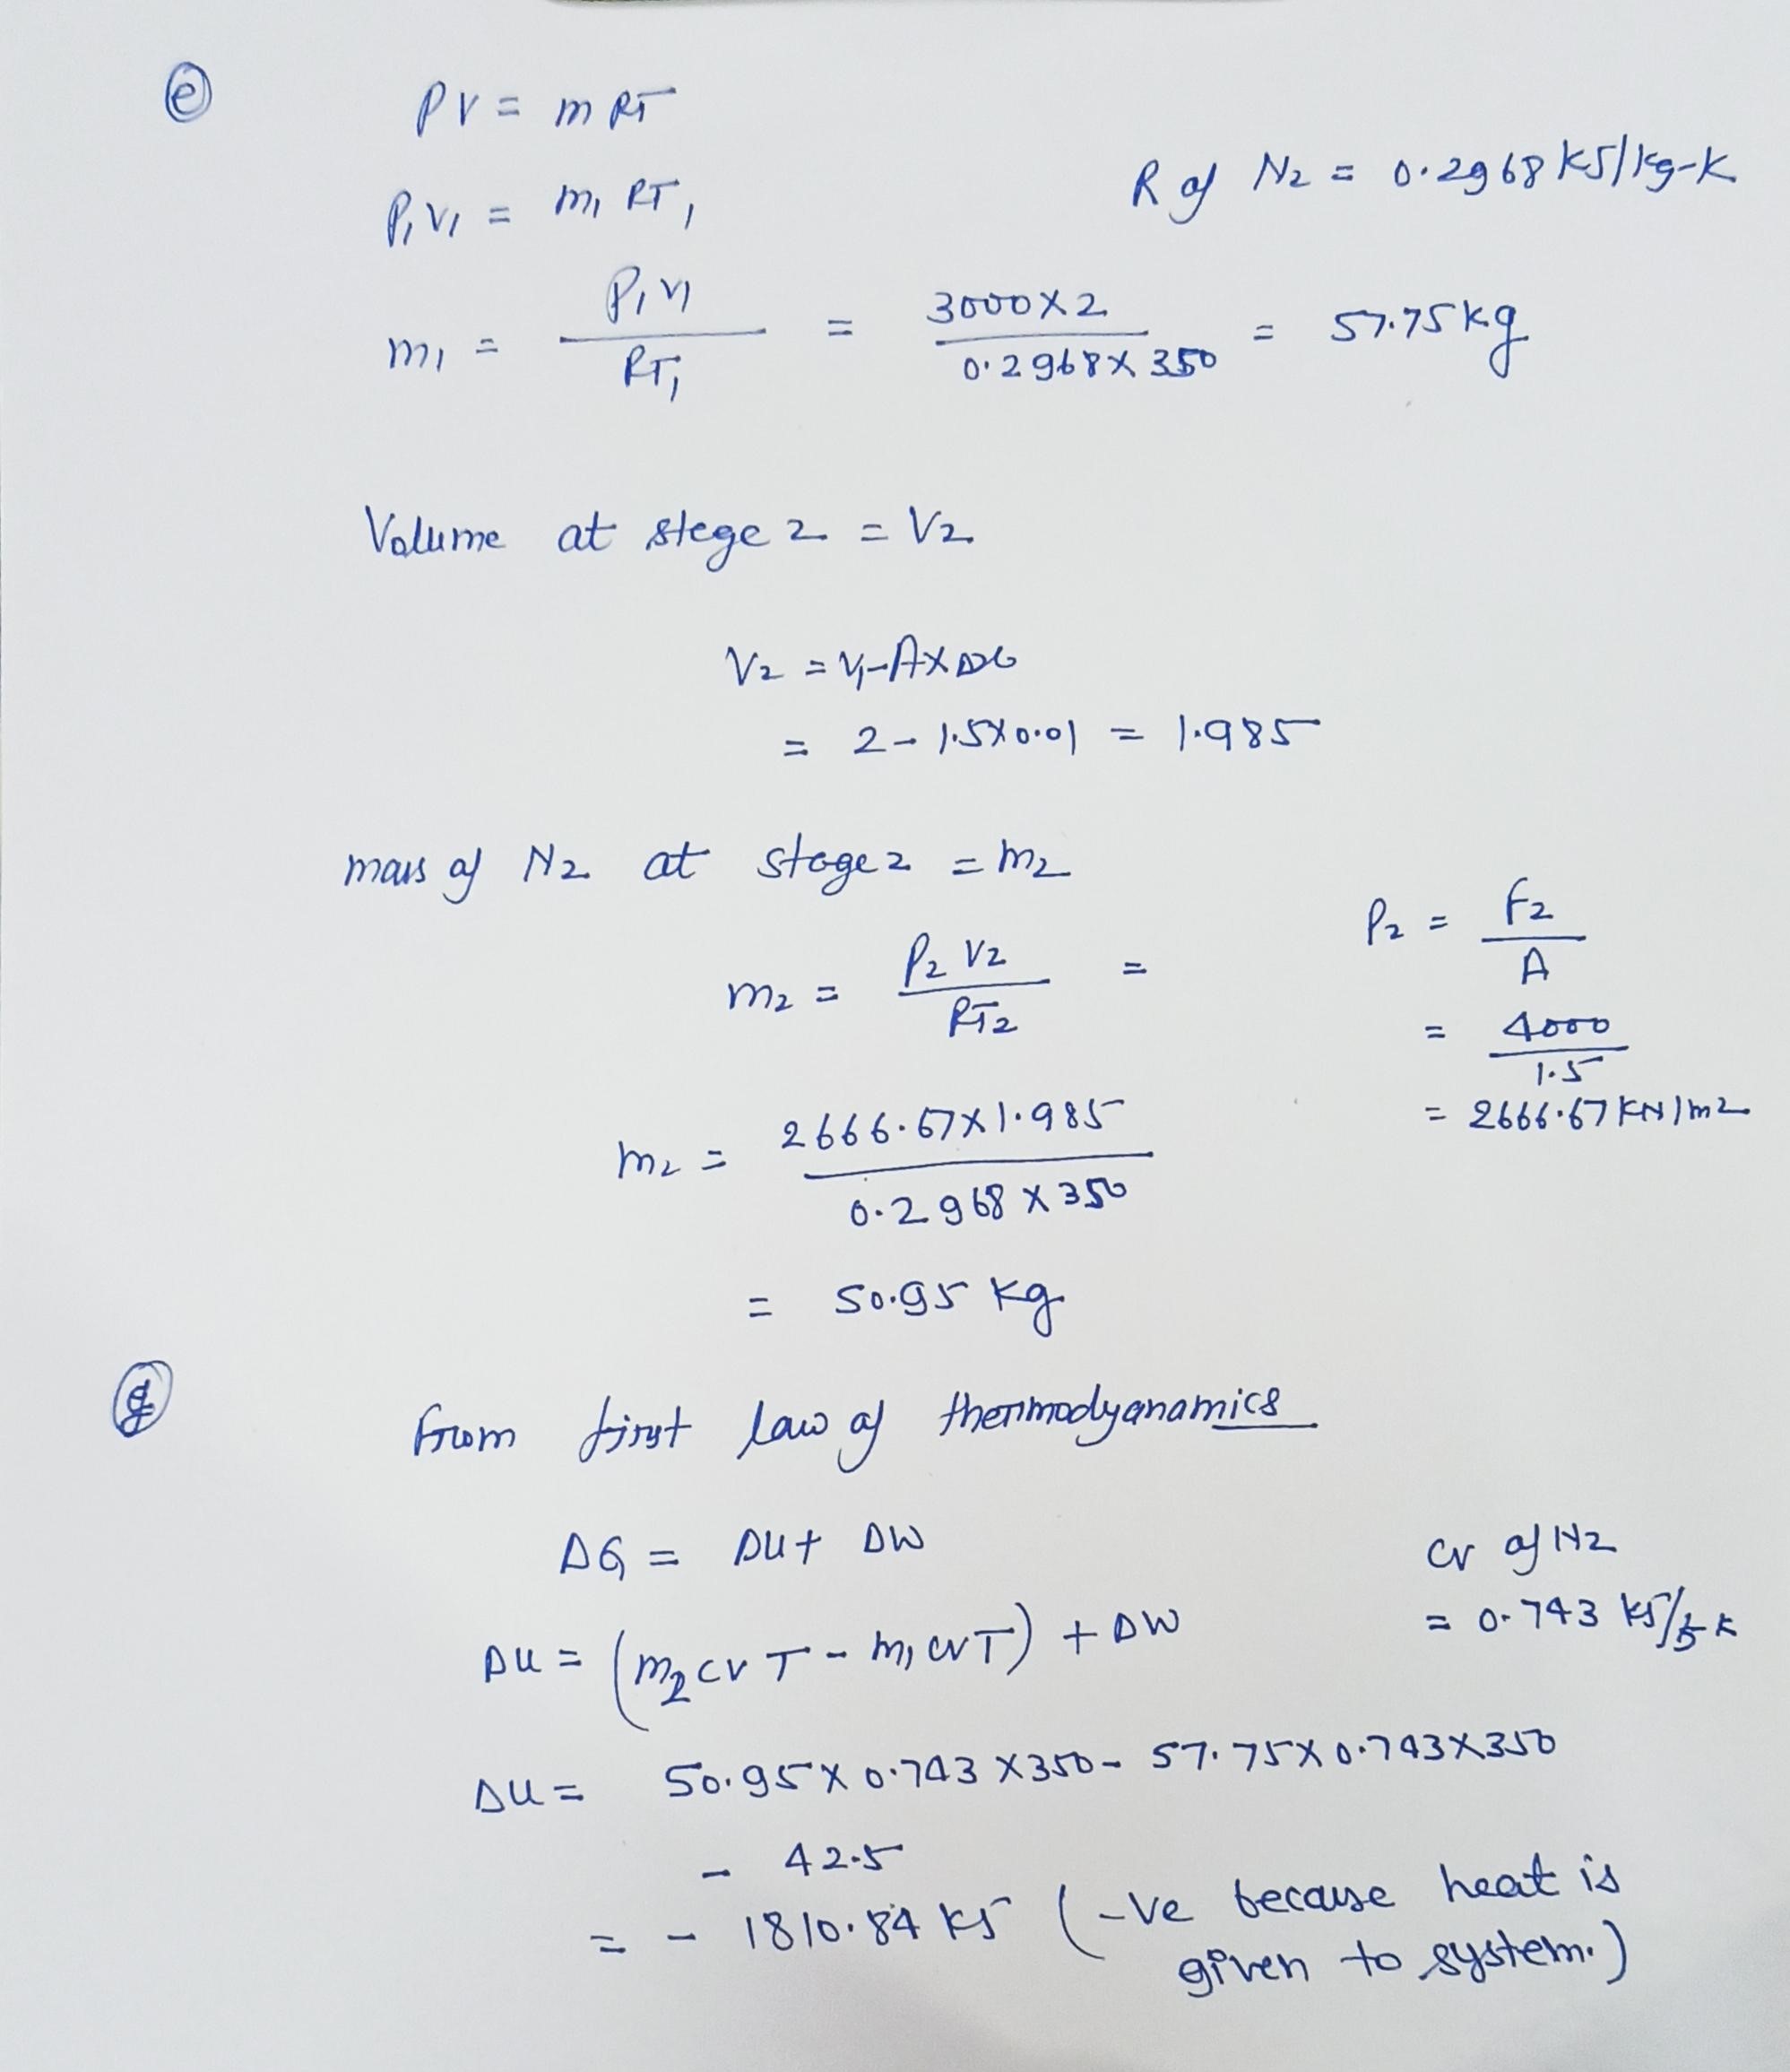 (e) PV = mRT
R of N2 = 0.2968 KJ/kg-K
P1V1 = m1 RT1
m1 = P1V1 / RT1 = 3000×2 / 0.2968×350 = 57.75kg
Volume at stege 2 = V2
V2 = V1-A×
= 2-1.5×0.01 = 1.985
mass of N2 at stage 2 = m2
m2 = P2 V2 / RT2 =
P2 = F2 / A
= 4000 / 1.5
= 2666.67 KN/m2
m2 = 2666.67×1.985 / 0.2968×350
= 50.95 kg
From first law of thermodyanamics
ΔQ = ΔU+ ΔW
Cv of N2
= 0.743
ΔU = (m2 cv T - m1 cvT) + ΔW
ΔU = 50.95×0.743×350-57.75×0.743×350
- 42.5
= - 1810.84 KJ (-ve because heat is
given to system.)